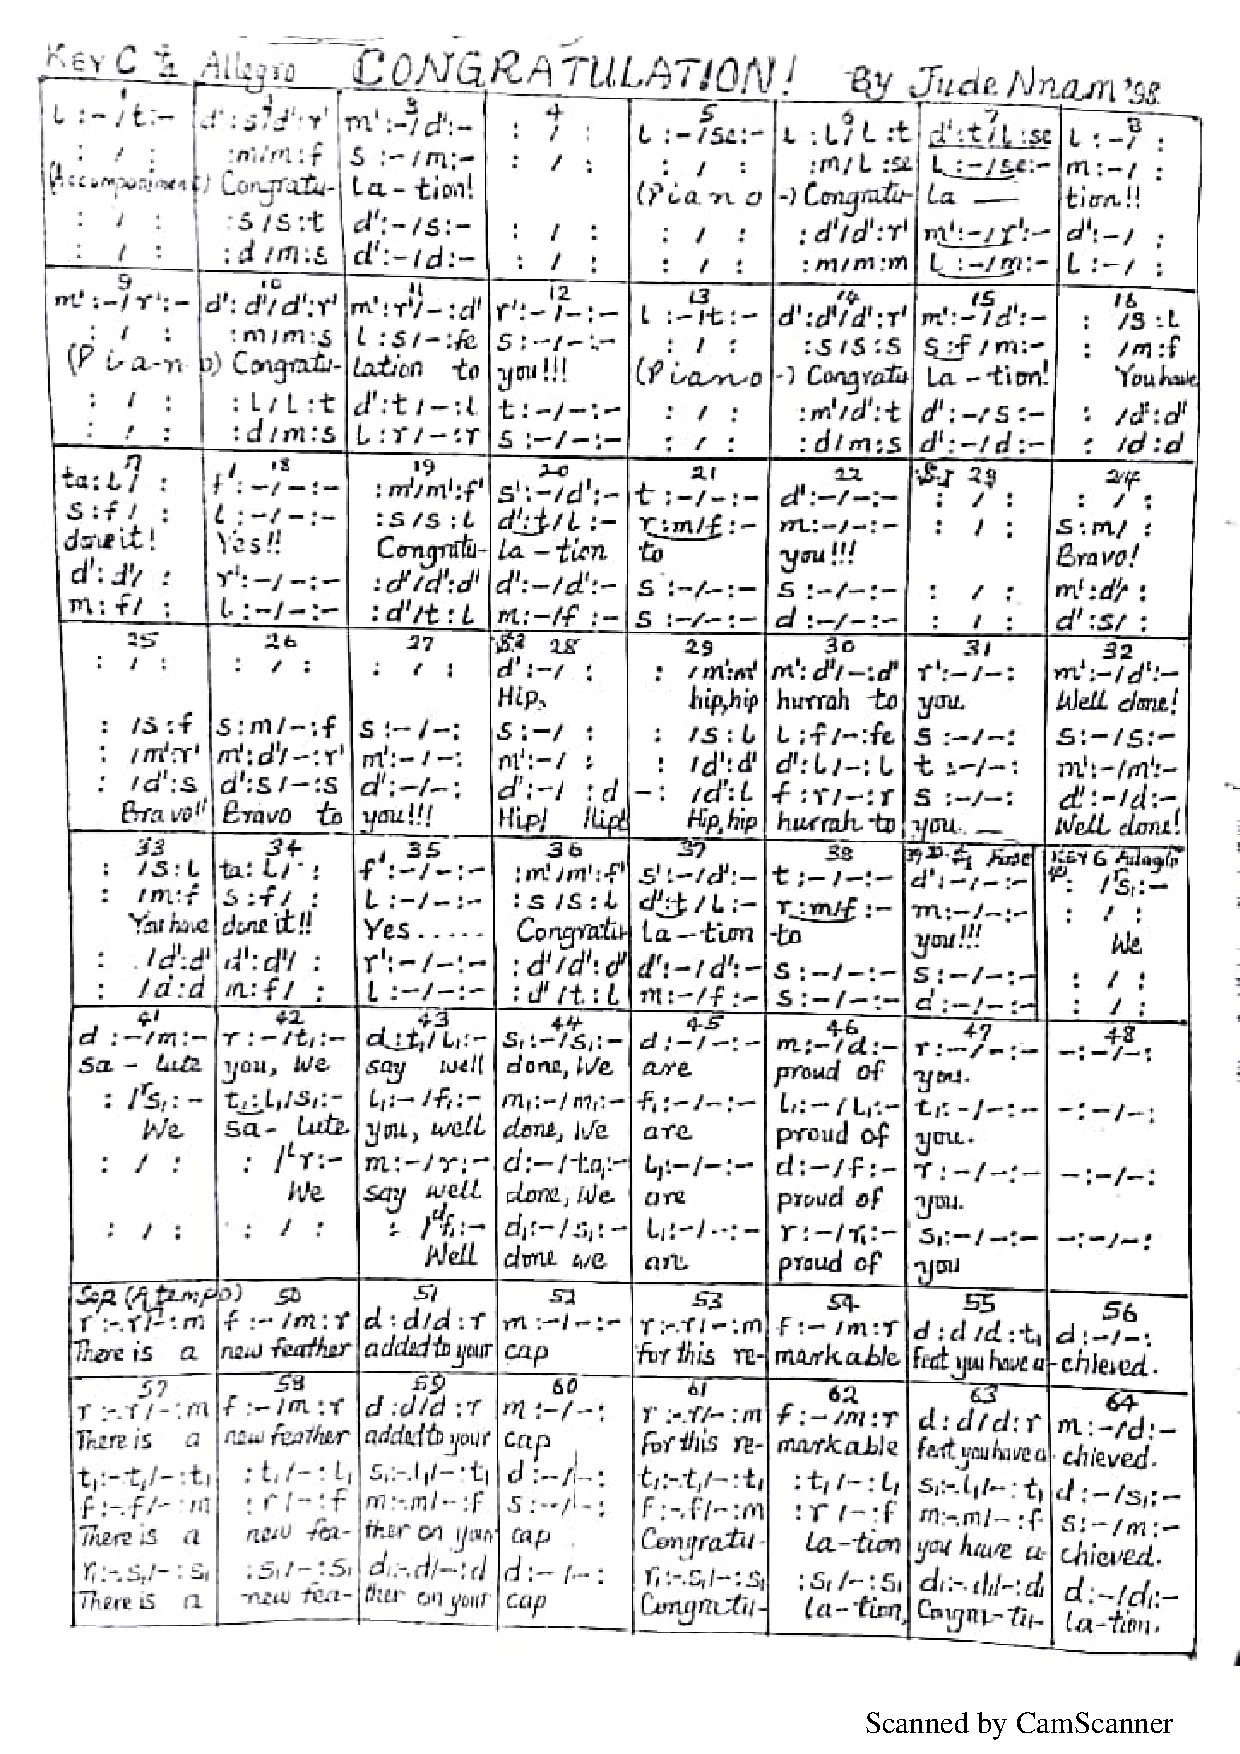 KEY C 4/2 Allegro CONGRATULATION! By Jude Nnam '98
1 2 3 4 5 6 7 8
l :-/t:- d':s/d':r' m':-/d':- : / : l :-/se:- l :l/l :t d':t/l :se l :-/ :
: / : :m/m:f s :-/m:- : / : : / : :m/l :se l :-/se:- m:-/ :
(Accompaniment) Congratu- la-tion! (Piano -) Congratu- la — tion!!
: / : :s/s:t d':-/s:- : / : : / : :d'/d':r' m':-/r':- d':-/ :
: / : :d/m:s d':-/d:- : / : : / : :m/m:m l :-/m:- l :-/ :
9 10 11 12 13 14 15 16
m':-/r':- d':d'/d':r' m':r'/-:d' r':-/-:- l :-/t:- d':d'/d':r' m':-/d':- : /s :l
: / : :m/m:s l :s/-:fe s :-/-:- : / : :s/s:s s:f/m:- : /m:f
(Piano) Congratu- lation to you!!! (Piano -) Congratu La-tion! You have
: / : :l/l:t d':t/-:l t:-/-:- : / : :m'/d':t d':-/s:- : /d':d'
: / : :d/m:s l:r/-:r s:-/-:- : / : :d/m:s d':-/d:- : /d:d
17 18 19 20 21 22 23 24
ta:l/ : f':-/-:- :m'/m':f' s':-/d':- t :-/-:- d':-/-:- : / : : / :
s:f/ : l:-/-:- :s/s:l d':t/l:- r:m/f:- m:-/-:- : / : s:m/ :
done it! Yes!! Congratu- la-tion to you!!! Bravo!
d':d'/ : r':-/-:- :d'/d':d' d':-/d':- s :-/-:- s :-/-:- : / : m':d'/ :
m:f/ : l:-/-:- :d'/t:l m:-/f :- s :-/-:- d :-/-:- : / : d':s/ :
25 26 27 28 29 30 31 32
: / : : / : : / : d':-/ : : /m':m' m':d'/-:d' r':-/-: m':-/d':-
Hip, hip,hip hurrah to you. Well done!
: /s:f s:m/-:f s:-/-: s:-/ : : /s:l l:f/-:fe s:-/-: s:-/s:-
: /m':r' m':d'/-:r' m':-/-: m':-/ : : /d':d' d':l/-:l t:-/-: m':-/m':-
: /d':s d':s/-:s d':-/-: d':-/ :d -: /d':l f:r/-:r s:-/-: d':-/d:-
Bravo!! Bravo to you!!! Hip! Hip! Hip,hip hurrah to you. — Well done!
33 34 35 36 37 38 39 KEY G Adagio
: /s:l ta:l/ : f':-/-:- :m'/m':f' s':-/d':- t:-/-:- d':-/-:- : /s₁:-
: /m:f s:f/ : l:-/-:- :s/s:l d':t/l:- r:m/f:- m:-/-:- : / :
You have done it!! Yes..... Congratu la-tion to you!!! We
: /d':d' d':d'/ : r':-/-:- :d'/d':d' d':-/d':- s:-/-:- s:-/-:- : / :
: /d:d m:f/ : l:-/-:- :d'/t:l m:-/f:- s:-/-:- d:-/-:- : / :
41 42 43 44 45 46 47 48
d :-/m:- r:-/t₁:- d:t₁/l₁:- s₁:-/s₁:- d:-/-:- m:-/d:- r:-/-:- -:-/-:
Sa-lute you, We say well done, We are proud of you.
: /s₁:- t₁:l₁/s₁:- l₁:-/f₁:- m₁:-/m₁:- f₁:-/-:- l₁:-/l₁:- t₁:-/-:- -:-/-:
We Sa-lute you, well done, We are proud of you.
: / : : /r:- m:-/r:- d:-/ta₁:- l₁:-/-:- d:-/f:- r:-/-:- -:-/-:
We say well done, We are proud of you.
: / : : / : : /f₁:- d₁:-/s₁:- l₁:-/-:- r:-/r₁:- s₁:-/-:- -:-/-:
Well done we are proud of you
Sop (A tempo) 50 51 52 53 54 55 56
r:-.r/-:m f:-/m:r d:d/d:r m:-/-:- r:-.r/-:m f:-/m:r d:d/d:t₁ d:-/-:
There is a new feather added to your cap for this re- markable feat you have a- chieved.
57 58 59 60 61 62 63 64
r:-.r/-:m f:-/m:r d:d/d:r m:-/-: r:-.r/-:m f:-/m:r d:d/d:r m:-/d:-
There is a new feather added to your cap For this re- markable feat you have a- chieved.
t₁:-.t₁/-:t₁ :t₁/-:l₁ s₁:-.l₁/-:t₁ d:-/-: t₁:-.t₁/-:t₁ :t₁/-:l₁ s₁:-.l₁/-:t₁ d:-/s₁:-
f:-.f/-:m :r/-:f m:-.m/-:f s:-/-: f:-.f/-:m :r/-:f m:-.m/-:f s:-/m:-
There is a new fea- ther on your cap Congratu- la-tion you have a- chieved.
r₁:-.s₁/-:s₁ :s₁/-:s₁ d:-.d/-:d d:-/-: r₁:-.s₁/-:s₁ :s₁/-:s₁ d:-.d₁/-:d₁ d:-/d₁:-
There is a new fea- ther on your cap Congratu- la-tion, Congra-tu- la-tion.
Scanned by CamScanner